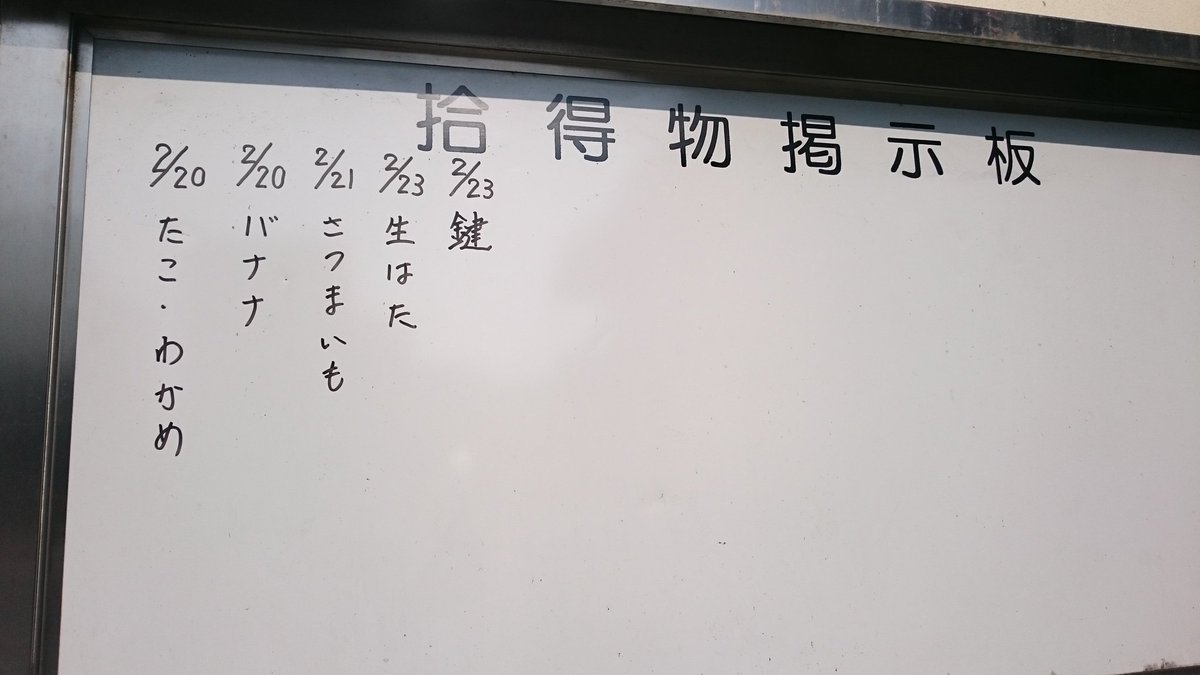 拾得物掲示板
2/23 鍵
2/23 生はた
2/21 さつまいも
2/20 バナナ
2/20 たこ・わかめ